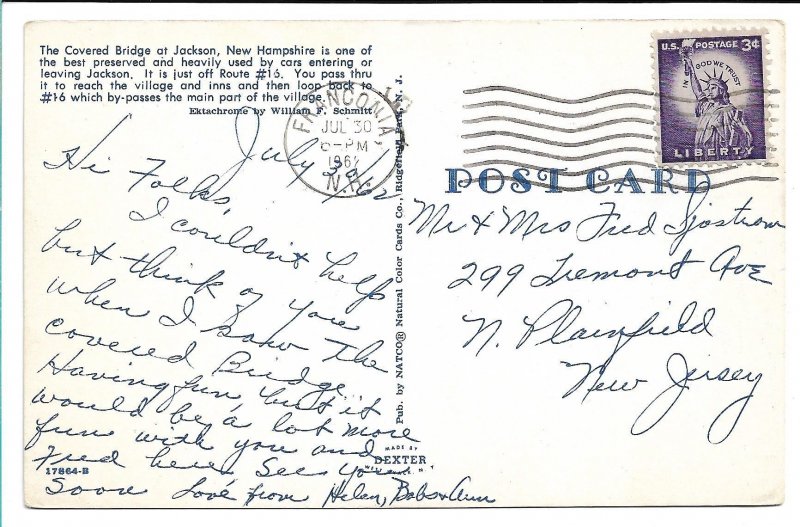 The Covered Bridge at Jackson, New Hampshire is one of
the best preserved and heavily used by cars entering or
leaving Jackson. It is just off Route #16. You pass thru
it to reach the village and inns and then loop back to
#16 which by-passes the main part of the village.
Ektachrome by William F. Schmitt
FRANCONIA,
JUL 30
6-PM
1962
N.H.
U.S. POSTAGE 3¢
IN GOD WE TRUST
LIBERTY
POST CARD
Pub. by NATCO® Natural Color Cards Co., Ridgefield Park, N. J.
July 30/62
Hi Folks,
I couldn't help
but think of you
when I saw the
covered Bridge.
Having fun, but it
would be a lot more
fun with you and
Fred here. See you
Soon Love from Helen, Bob & Ann
Mr & Mrs Fred Sjostrom
299 Tremont Ave
N. Plainfield
New Jersey
MADE BY
DEXTER
17864-B